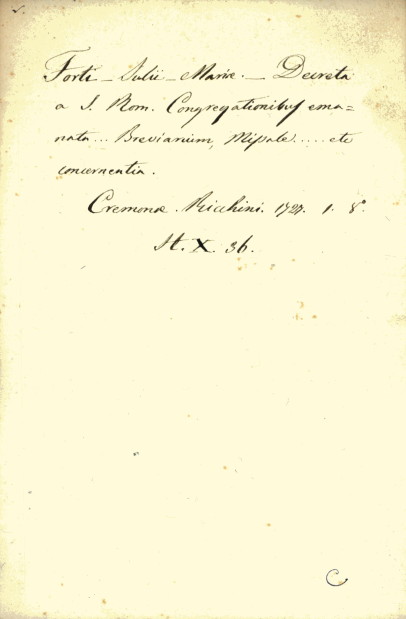 Forti - Julii - Mariæ. - Decreta
a S. Rom. Congregationibus ema=
nata... Breviarium, Missale..... etc
concernentia.
Cremonæ. Ricchini. 1727. 1. 8°.
St. X. 36.
C